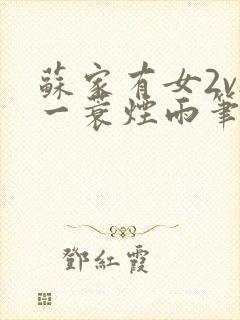 蘇家有女2v
一蓑煙雨筆
鄧紅霞